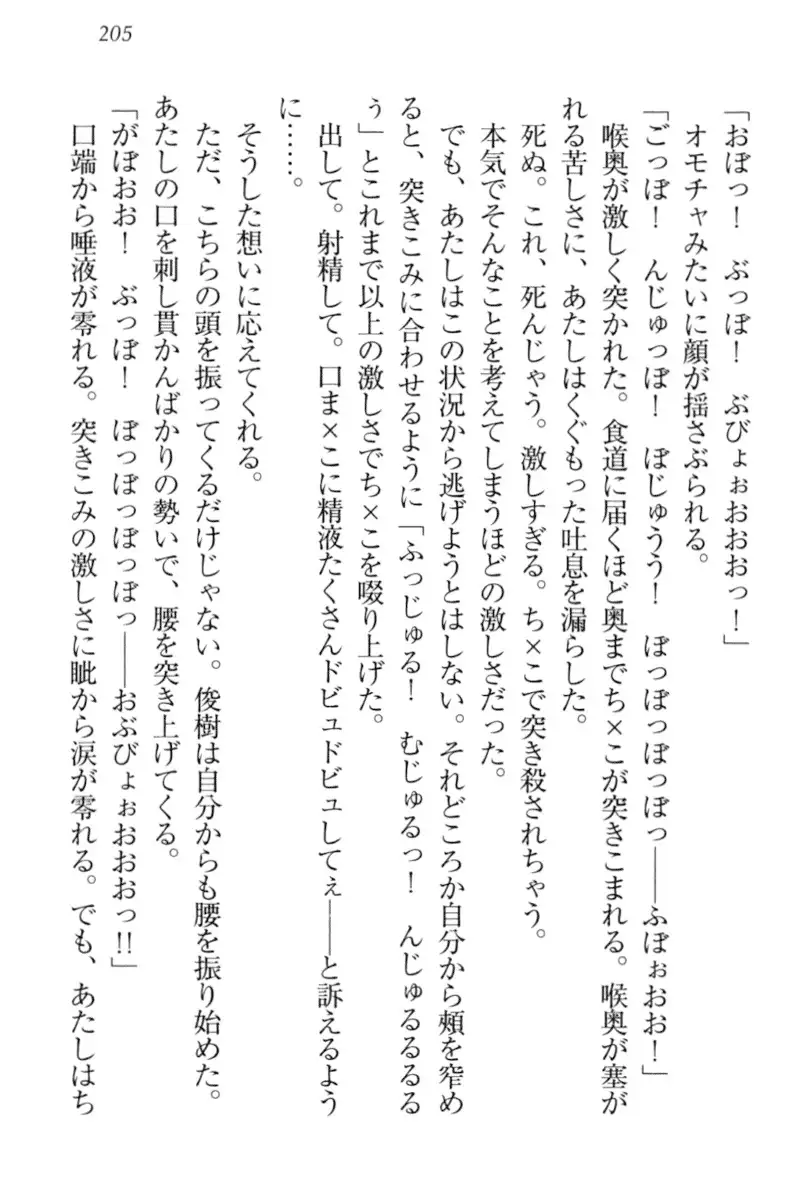 205
「おぼっ！　ぶっぽ！　ぶびょぉおおおっ！」
オモチャみたいに顔が揺さぶられる。
「ごっぽ！　んじゅっぽ！　ぽじゅうう！　ぽっぽっぽっぽっ――ふぼぉおお！」
喉奥が激しく突かれた。食道に届くほど奥までち×こが突きこまれる。喉奥が塞が
れる苦しさに、あたしはくぐもった吐息を漏らした。
死ぬ。これ、死んじゃう。激しすぎる。ち×こで突き殺されちゃう。
本気でそんなことを考えてしまうほどの激しさだった。
でも、あたしはこの状況から逃げようとはしない。それどころか自分から頬を窄め
ると、突きこみに合わせるように「ふっじゅる！　むじゅるっ！　んじゅるるるる
ぅ」とこれまで以上の激しさでち×こを啜り上げた。
出して。射精して。口ま×こに精液たくさんドビュドビュしてぇ――と訴えるよう
に……。
そうした想いに応えてくれる。
ただ、こちらの頭を振ってくるだけじゃない。俊樹は自分からも腰を振り始めた。
あたしの口を刺し貫かんばかりの勢いで、腰を突き上げてくる。
「がぼおお！　ぶっぽ！　ぽっぽっぽっぽっ――おぶびょぉおおおっ!!」
口端から唾液が零れる。突きこみの激しさに眦から涙が零れる。でも、あたしはち